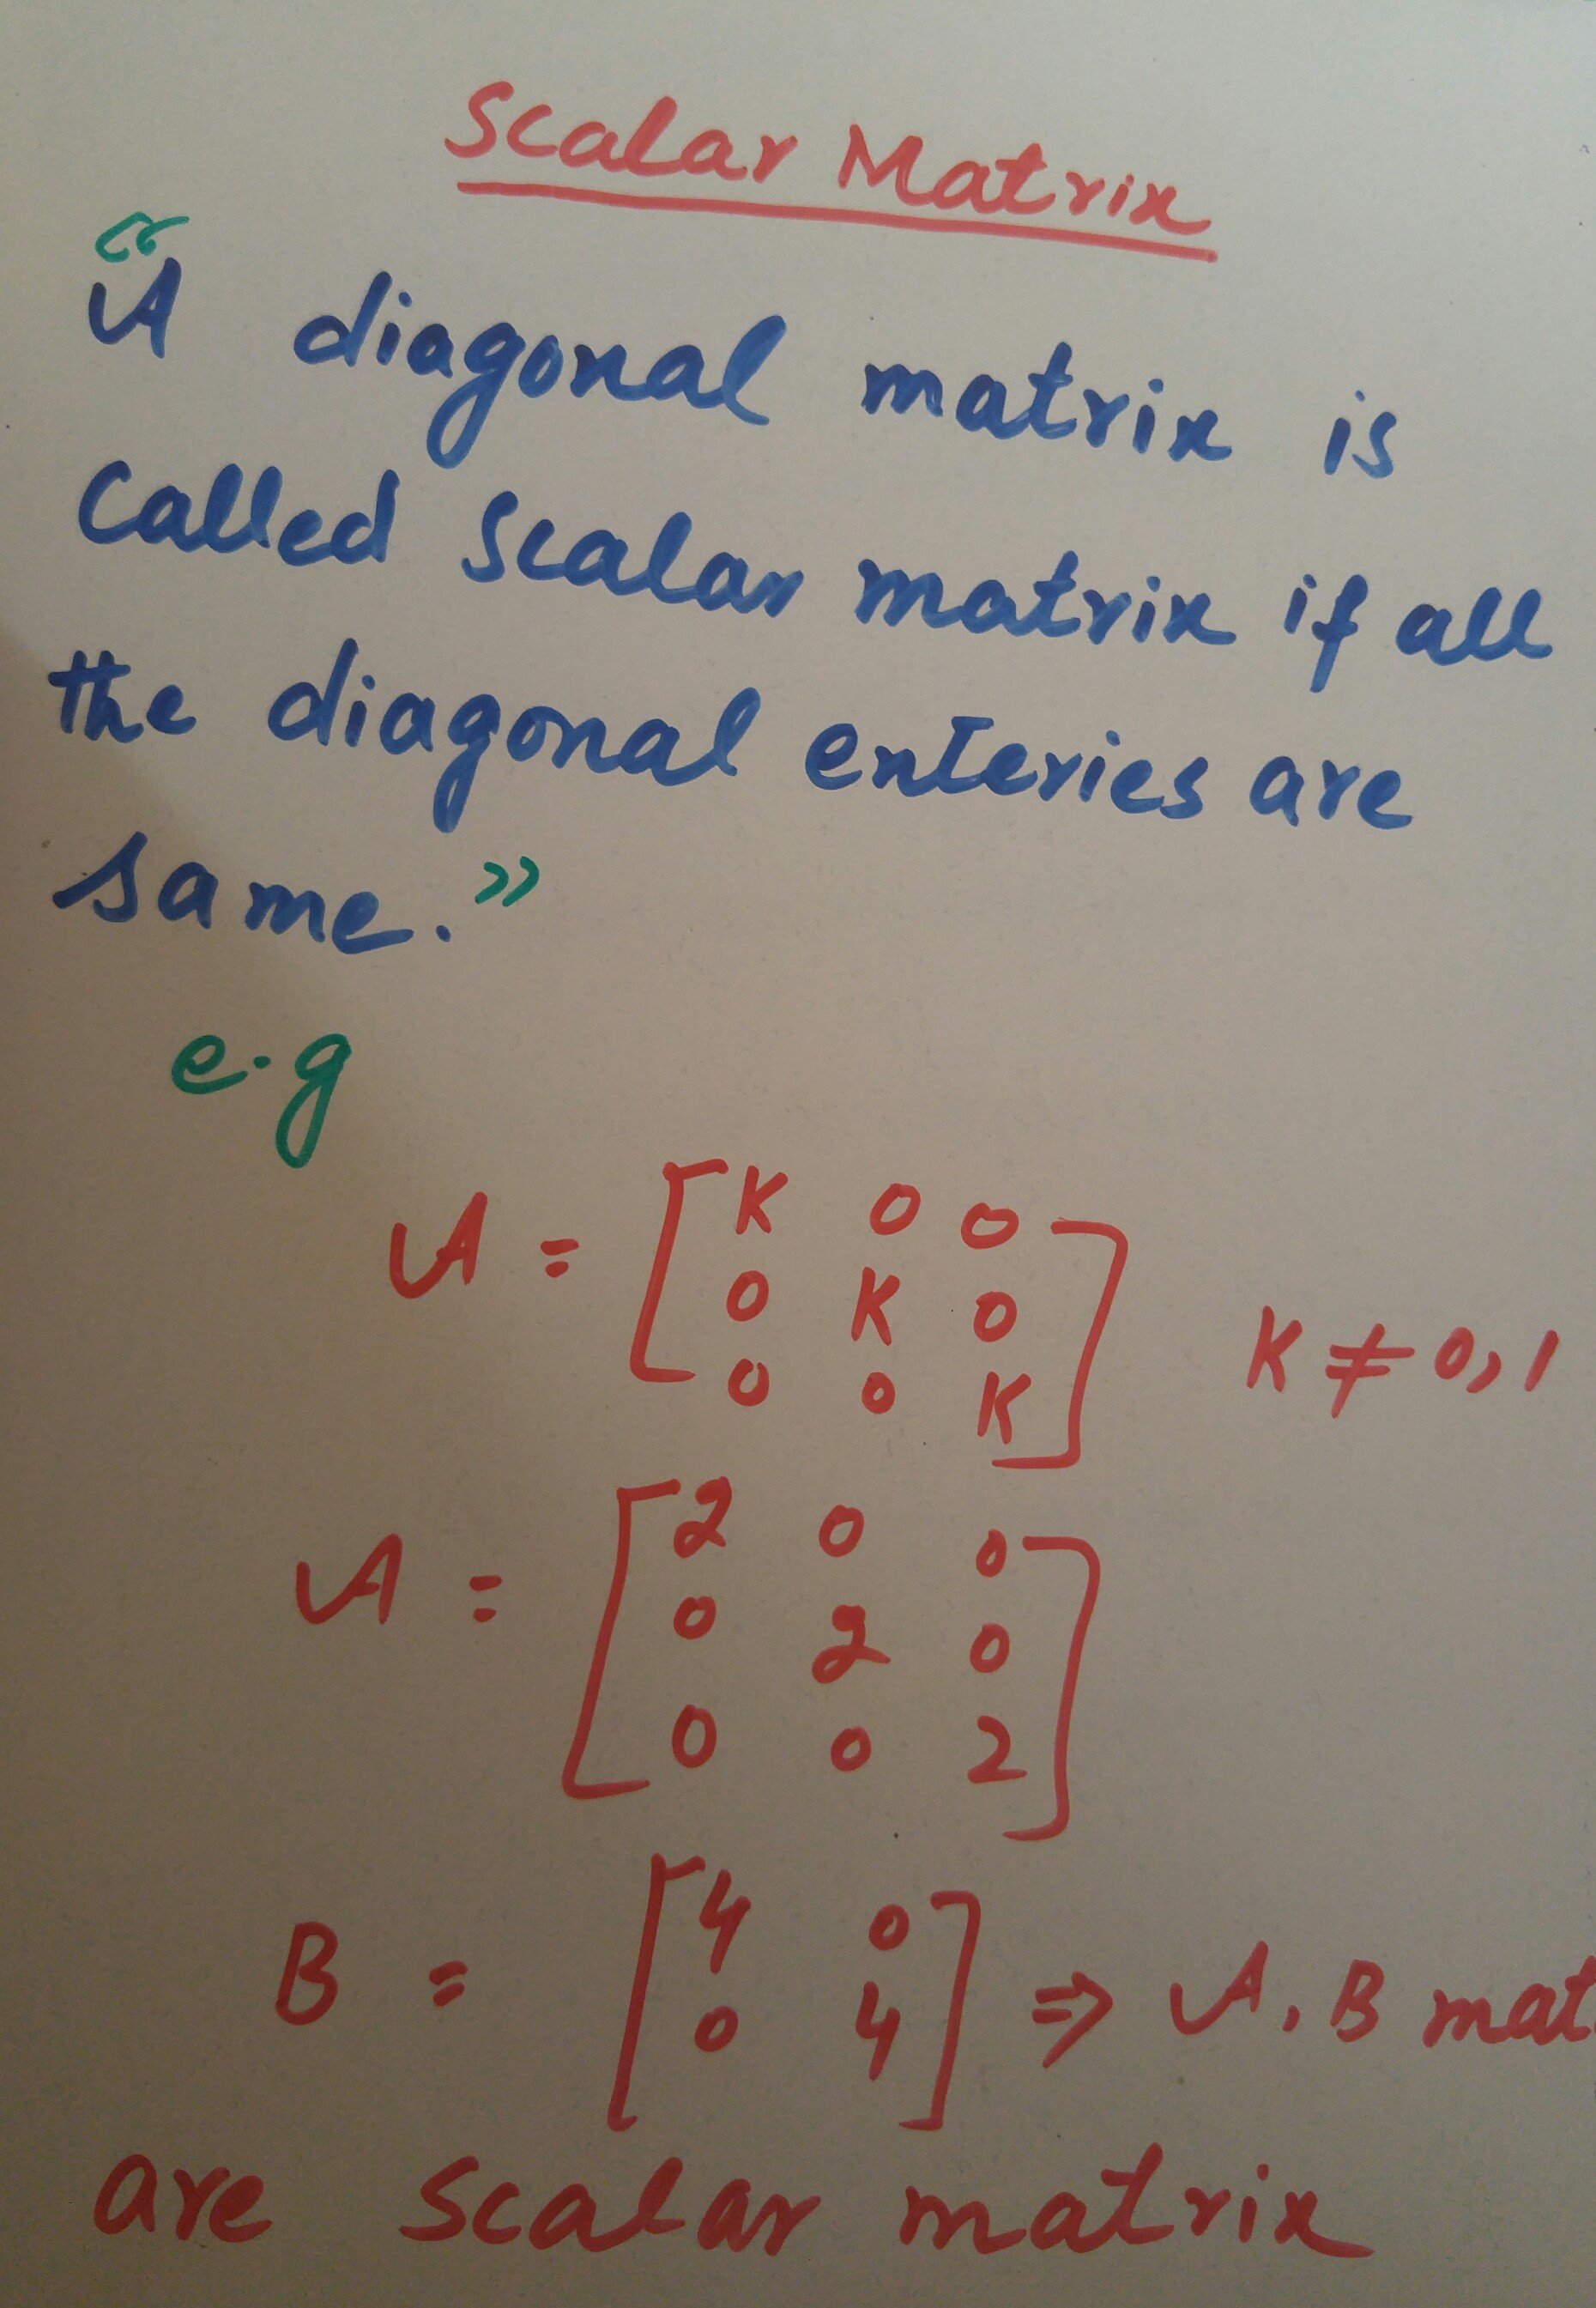 Scalar Matrix
“A diagonal matrix is
called scalar matrix if all
the diagonal enteries are
same.”
e.g
A = [K 0 0
0 K 0
0 0 K] K ≠ 0, 1
A = [2 0 0
0 2 0
0 0 2]
B = [4 0
0 4] ⇒ A, B mat
are scalar matrix